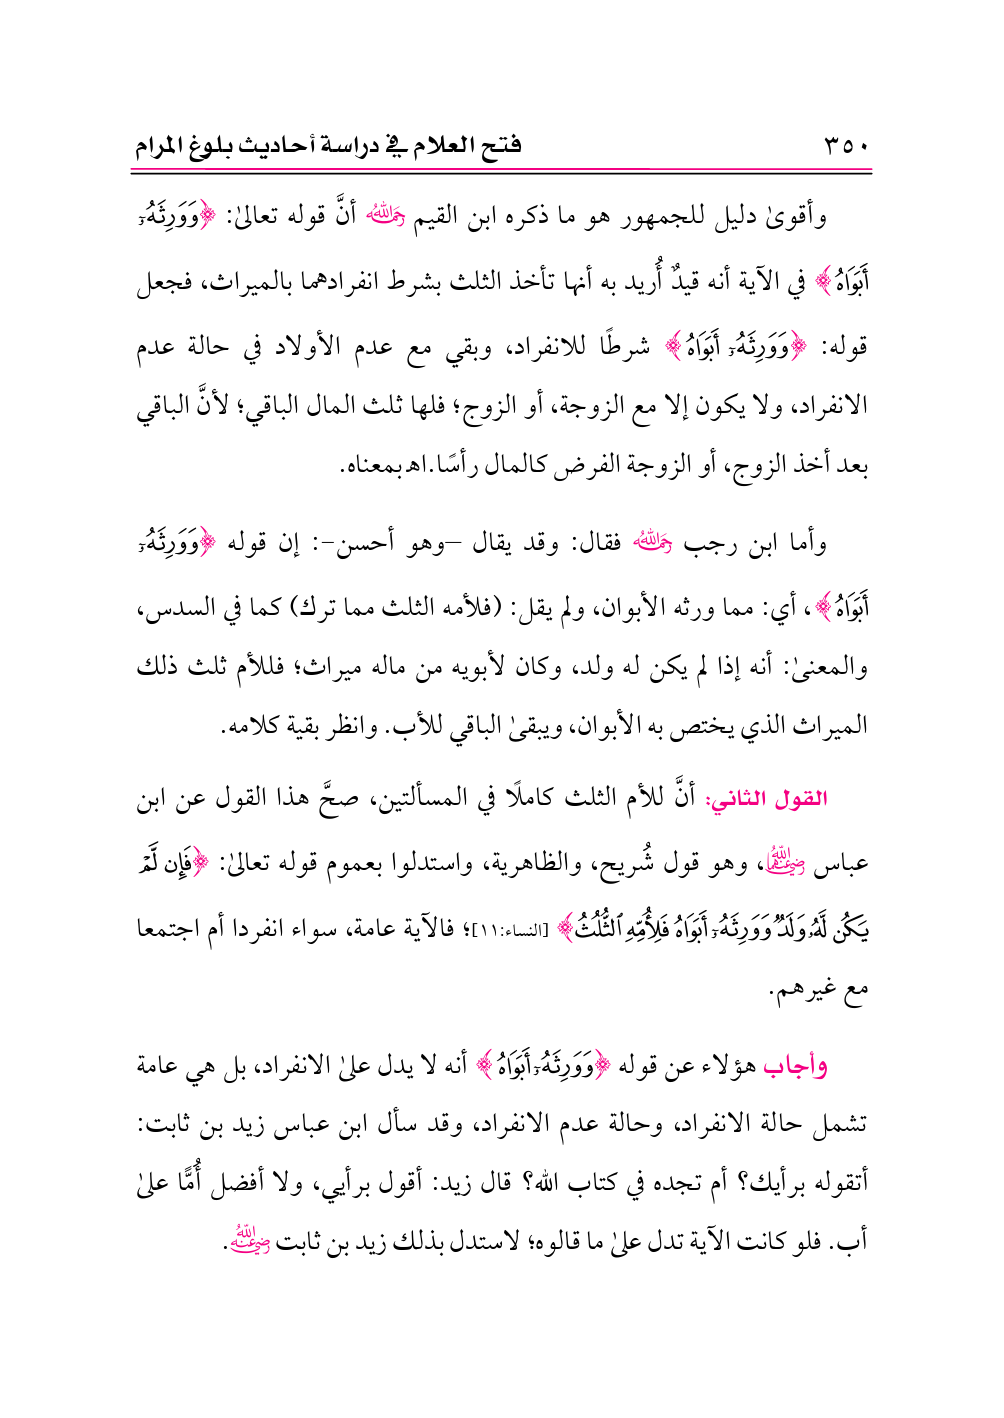 ٣٥٠ فتح العلام في دراسة أحاديث بلوغ المرام
وأقوىٰ دليل للجمهور هو ما ذكره ابن القيم رَحِمَهُ اللهُ أنَّ قوله تعالىٰ: ﴿وَوَرِثَهُۥٓ
أَبَوَاهُ﴾ في الآية أنه قيدٌ أُريد به أنها تأخذ الثلث بشرط انفرادهما بالميراث، فجعل
قوله: ﴿وَوَرِثَهُۥٓ أَبَوَاهُ﴾ شرطًا للانفراد، وبقي مع عدم الأولاد في حالة عدم
الانفراد، ولا يكون إلا مع الزوجة، أو الزوج؛ فلها ثلث المال الباقي؛ لأنَّ الباقي
بعد أخذ الزوج، أو الزوجة الفرض كالمال رأسًا.اهـ بمعناه.
وأما ابن رجب رَحِمَهُ اللهُ فقال: وقد يقال –وهو أحسن-: إن قوله ﴿وَوَرِثَهُۥٓ
أَبَوَاهُ﴾، أي: مما ورثه الأبوان، ولم يقل: (فلأمه الثلث مما ترك) كما في السدس،
والمعنىٰ: أنه إذا لم يكن له ولد، وكان لأبويه من ماله ميراث؛ فللأم ثلث ذلك
الميراث الذي يختص به الأبوان، ويبقىٰ الباقي للأب. وانظر بقية كلامه.
القول الثاني: أنَّ للأم الثلث كاملًا في المسألتين، صحَّ هذا القول عن ابن
عباس رَضِيَ اللهُ عَنْهُمَا، وهو قول شُريح، والظاهرية، واستدلوا بعموم قوله تعالىٰ: ﴿فَإِن لَّمْ
يَكُن لَّهُۥ وَلَدٌ وَوَرِثَهُۥٓ أَبَوَاهُ فَلِأُمِّهِ ٱلثُّلُثُ﴾ [النساء:١١]؛ فالآية عامة، سواء انفردا أم اجتمعا
مع غيرهم.
وأجاب هؤلاء عن قوله ﴿وَوَرِثَهُۥٓ أَبَوَاهُ﴾ أنه لا يدل علىٰ الانفراد، بل هي عامة
تشمل حالة الانفراد، وحالة عدم الانفراد، وقد سأل ابن عباس زيد بن ثابت:
أتقوله برأيك؟ أم تجده في كتاب الله؟ قال زيد: أقول برأيي، ولا أفضل أُمًّا علىٰ
أب. فلو كانت الآية تدل علىٰ ما قالوه؛ لاستدل بذلك زيد بن ثابت رَضِيَ اللهُ عَنْهُ.